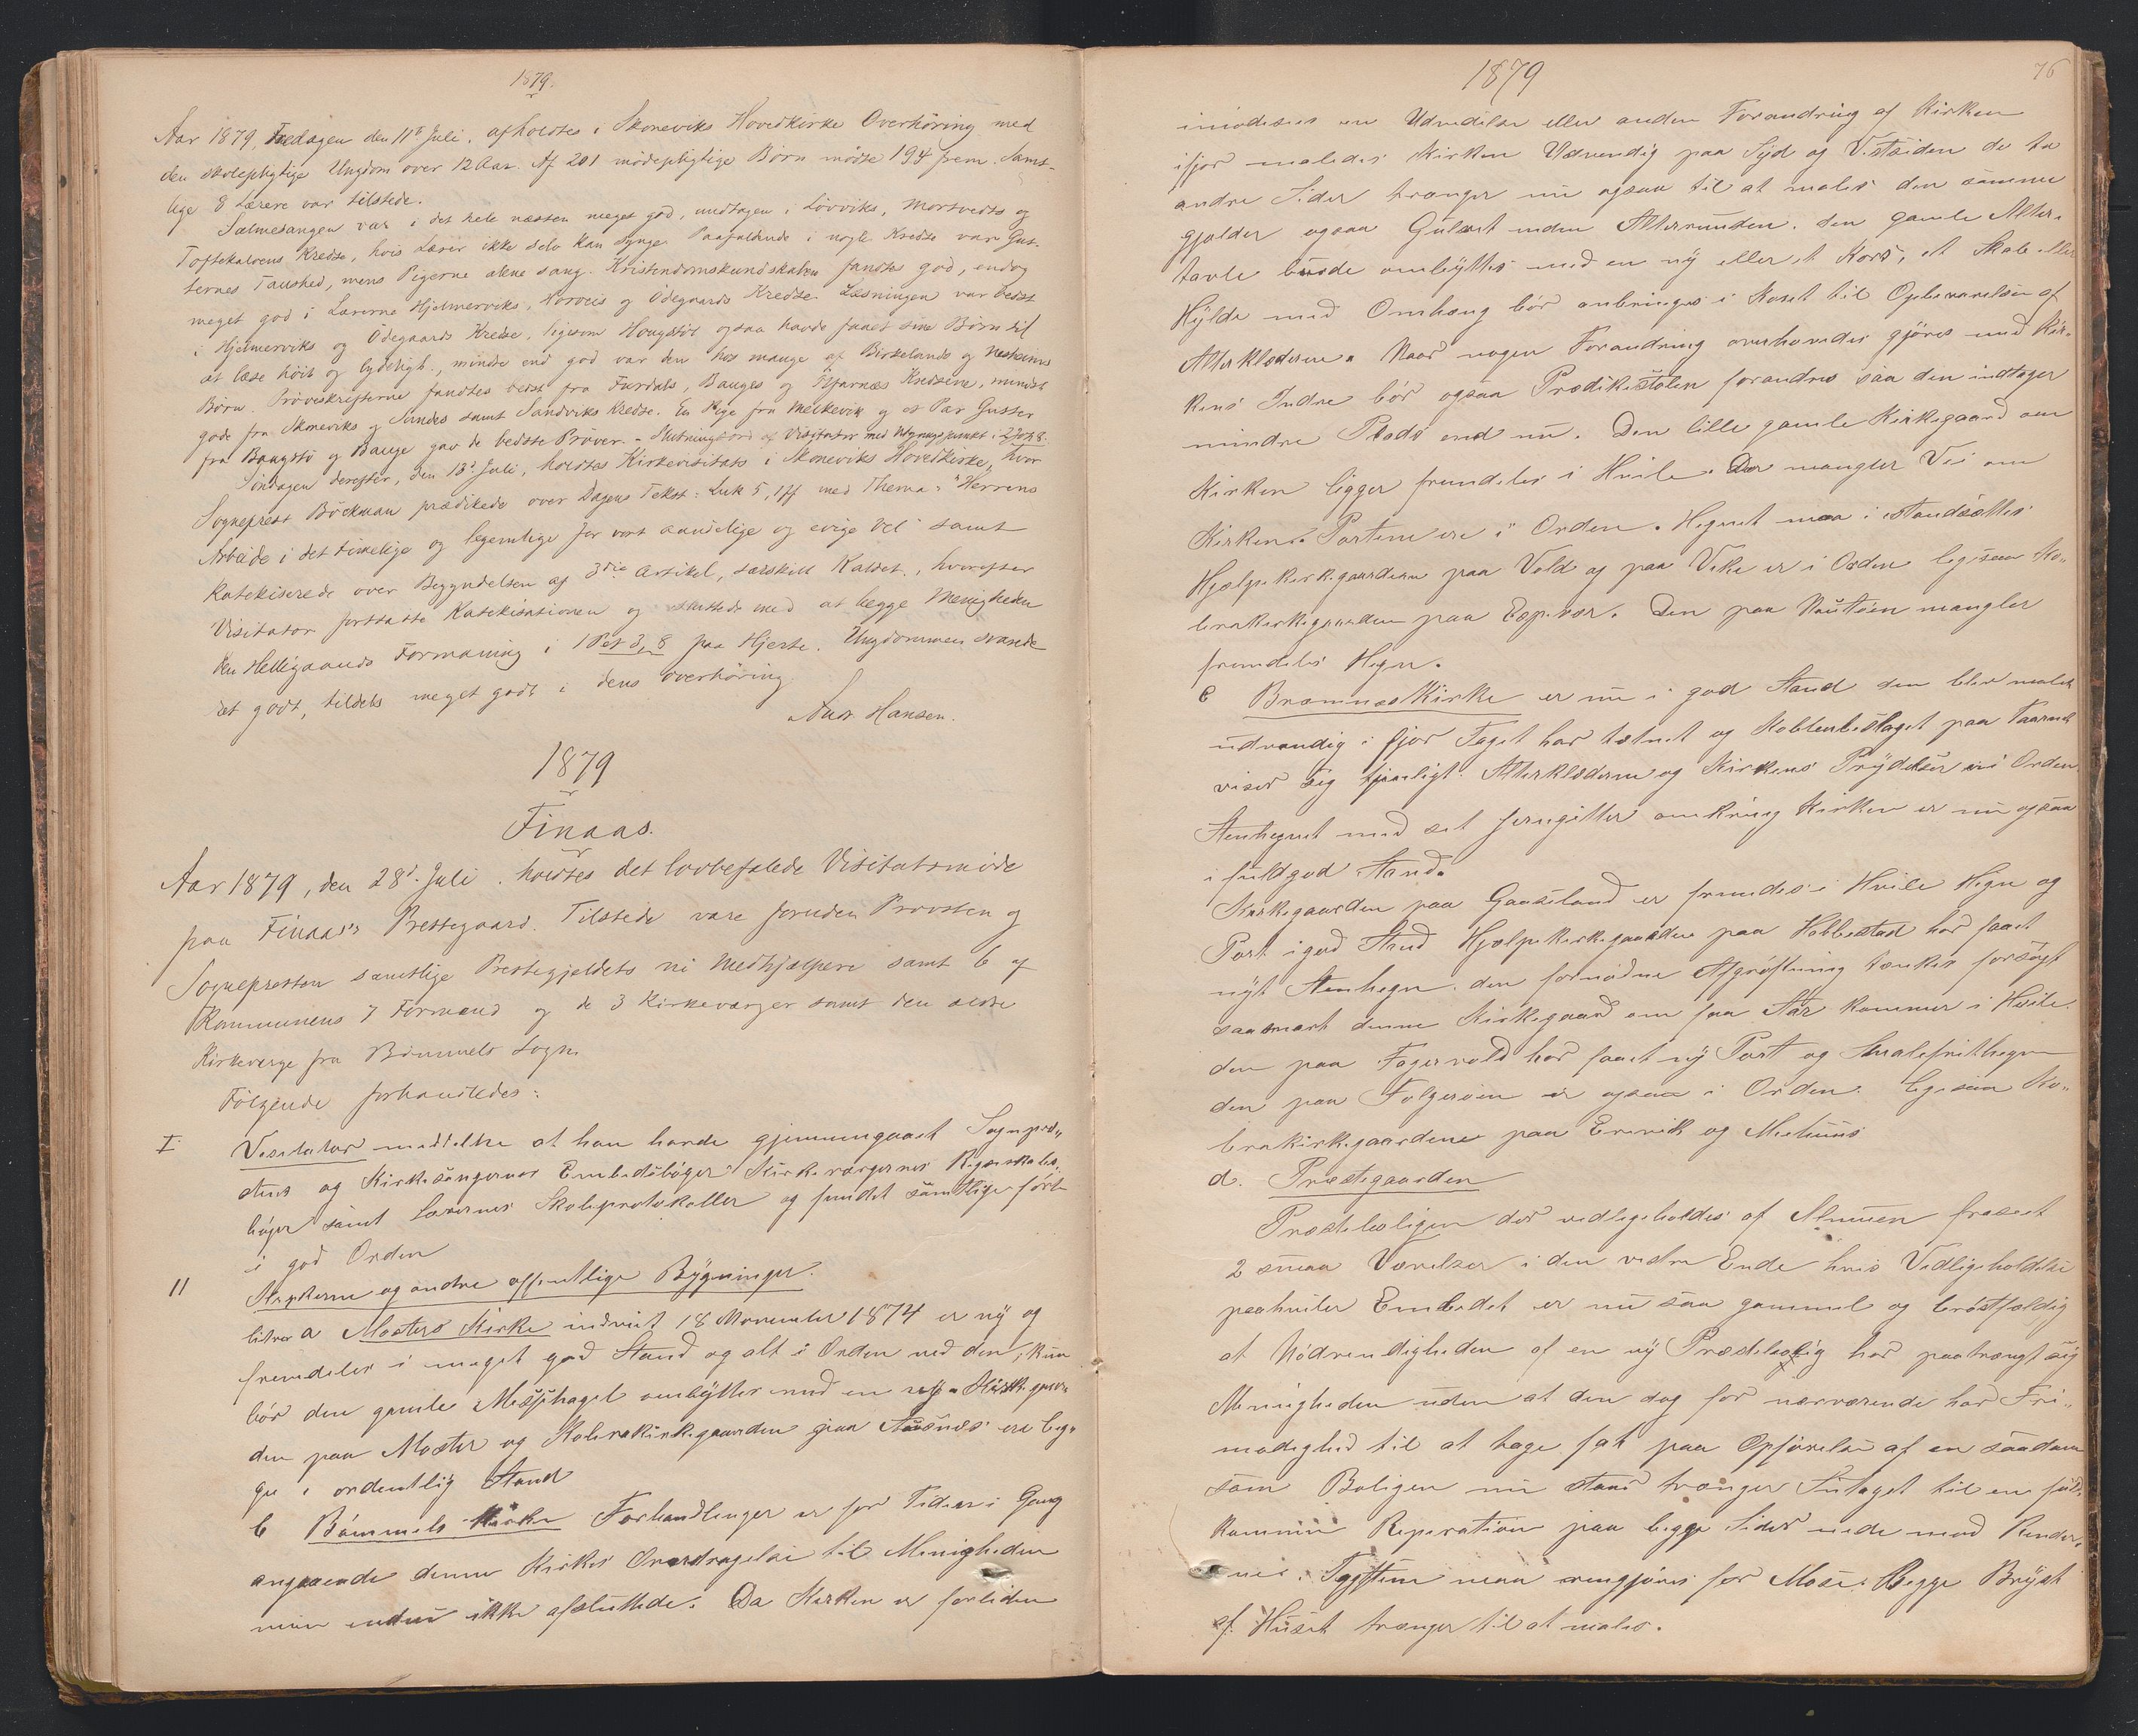 1879.
Aar 1879, Fredagen den 11te Juli, afholdtes i Skoneviks Hovedkirke Overhöring med
den skolepligtige Ungdom over 12 Aar. Af 201 mödepligtige Börn mödte 194 frem. Samt-
lige 8 Lærere var tilstede.
Salmesangen var i det hele næsten meget god, undtagen i Lövviks, Mortvedts og
Toftekalvens Kredse, hvis Lærer ikke selv kan synge. Paafaldende i nogle Kredse var Gut-
ternes Taushed, mens Pigerne alene sang. Kristendomskundskaben fandtes god, endog
meget god i Lærerne Hjelmerviks, Norveis og Ödegaards Kredse. Læsningen var bedst
i Hjelmerviks og Ödegaards Kredse, ligesom Hougstöl ogsaa havde faaet sine Börn til
at læse höit og lydeligt, mindre end god var den hos mange af Birkelands og Nesheims
Börn. Pröveskrifterne fandtes bedst fra Furdals, Bauges og Kredsene, mindst
gode fra Skoneviks og Sandes samt Sandviks Kredse. En Pige fra Melkevik og et Par Gutter
fra Bangstö og Bauge gav de bedste Pröver. - Slutningsord af Visitator med Udgangspunkt i 2 Joh 8.
Söndagen derefter, den 13de Juli, holdtes Kirkevisitats i Skoneviks Hovedkirke, hvor
Sogneprest Böckman prædikede over Dagens Tekst: Luk 5, 1ff med Thema: "Herrens
Arbeide i det timelige og legemlige for vort aandelige og evige Vel" samt
katekiserede over Begyndelsen af 3die Artikel, særskilt Kaldet, hvorefter
Visitator fortsatte Katekisationen og sluttede med at lægge Menigheden
den Helligaands Formaning i 1 Pet 3, 8 paa Hjerte. Ungdommen svarede
det godt, tildels meget godt i dens Overhöring.
Andr Hansen.
1879
Finaas.
Aar 1879, den 28de Juli, holdtes det lovbefalede Visitatsmöde
paa Finaas's Prestegaard. Tilstede vare foruden Provsten og
Sognepresten samtlige Prestegjeldets ni Medhjælpere samt 6 af
Kommunens 7 Formænd og de 3 Kirkeværger samt den ældre
Kirkeværge fra Bömmels Sogn.
Fölgende forhandledes:
I. Visitator meddelte at han havde gjennemgaaet Sognepræ-
stens og Kirkesangernes Embedsböger Kirkeværgernes Regnskabs-
böger samt Lærernes Skoleprotokoller og fundet samtlige förte
i god Orden
II Kirkerne og andre offentlige Bygninger.
litra a Mosters Kirke indviet 18 November 1874 er ny og
fremdeles i meget god Stand og alt i Orden ved den, kun
bör den gamle Messehagel ombyttes med en ny. Kirkegaar-
den paa Moster og Kolerakirkegaarden paa ere beg-
ge i ordentlig Stand
b Bömmels Kirke Forhandlinger er for Tiden i Gang
angaaende denne Kirkes Overdragelse til Menigheden
men endnu ikke afsluttede. Da Kirken er forliden
1879
76
imödesees en Udvidelse eller anden Forandring af Kirken
ifjor maledes Kirken Udvendig paa Syd og Vestsiden de to
andre Sider trænger nu ogsaa til at males den samme
gjælder ogsaa Gulvet inden Alterrunden. Den gamle Alter-
tavle burde ombyttes med en ny eller et Kors, et Skab eller
Hylde med Omhæng bör anbringes i Koret til Opbevarelse af
Alterklæderne. Naar nogen Forandring overhovedet gjöres med Kir-
kens Indre bör ogsaa Prædikestolen forandres saa den indtager
mindre Plads end nu. Den lille gamle Kirkegaard om
Kirken ligger fremdeles i Hvile. Der mangler Vei om
Kirken. Portene ere i Orden. Hegnet maa istandsættes
Hjælpekirkegaardene paa Vold og paa Vike er i Orden ligesaa Ko-
lerakirkegaarden paa Espevær. Den paa Nautöen mangler
fremdeles Hegn.
c Bremnes Kirke er nu i god Stand den blev malet
udvendig i fjor Taget har tætnet og Kobberbeslaget paa Taarnet
viser sig tjenligt. Alterklæderne og Kirkens Prydelser ere i Orden
Stenhegnet med set Jerngitter omkring Kirken er nu ogsaa
i fuldgod Stand.
Kirkegaarden paa Gaaseland er fremdeles i Hvile Hegn og
Port i god Stand Hjelpekirkegaarden paa Hobbestad har faaet
nyt Stenhegn. den fornödne Afgröftning tænkes forsögt
saasnart denne Kirkegaard om faa Aar kommer i Hvile.
den paa Fagervold har faaet ny Port og Skralefrithegn
den paa Folgeröen er ogsaa i Orden. ligesaa Ko-
lerakirkegaardene paa Erevik og Mehuus
d. Præstegaarden
Præsteboligen der vedligeholdes af Almuen fraseet
2 smaa Værelser i den vestre Ende hvis Vedligeholdelse
paahviler Embedet er nu saa gammel og bröstfældig
at Nödvendigheden af en ny Præstebolig har paatrængt sig
Menigheden uden at den dog for nærværende har Fri-
modighed til at tage fat paa Opförelse af en saadan
som Boligen nu staar trænger Sutaget til en fuld-
kommen Reparation paa begge Sider nede mod Render-
ne. maa rengjöres for Mose. Begge Bryst
af Huset trænger til at males.